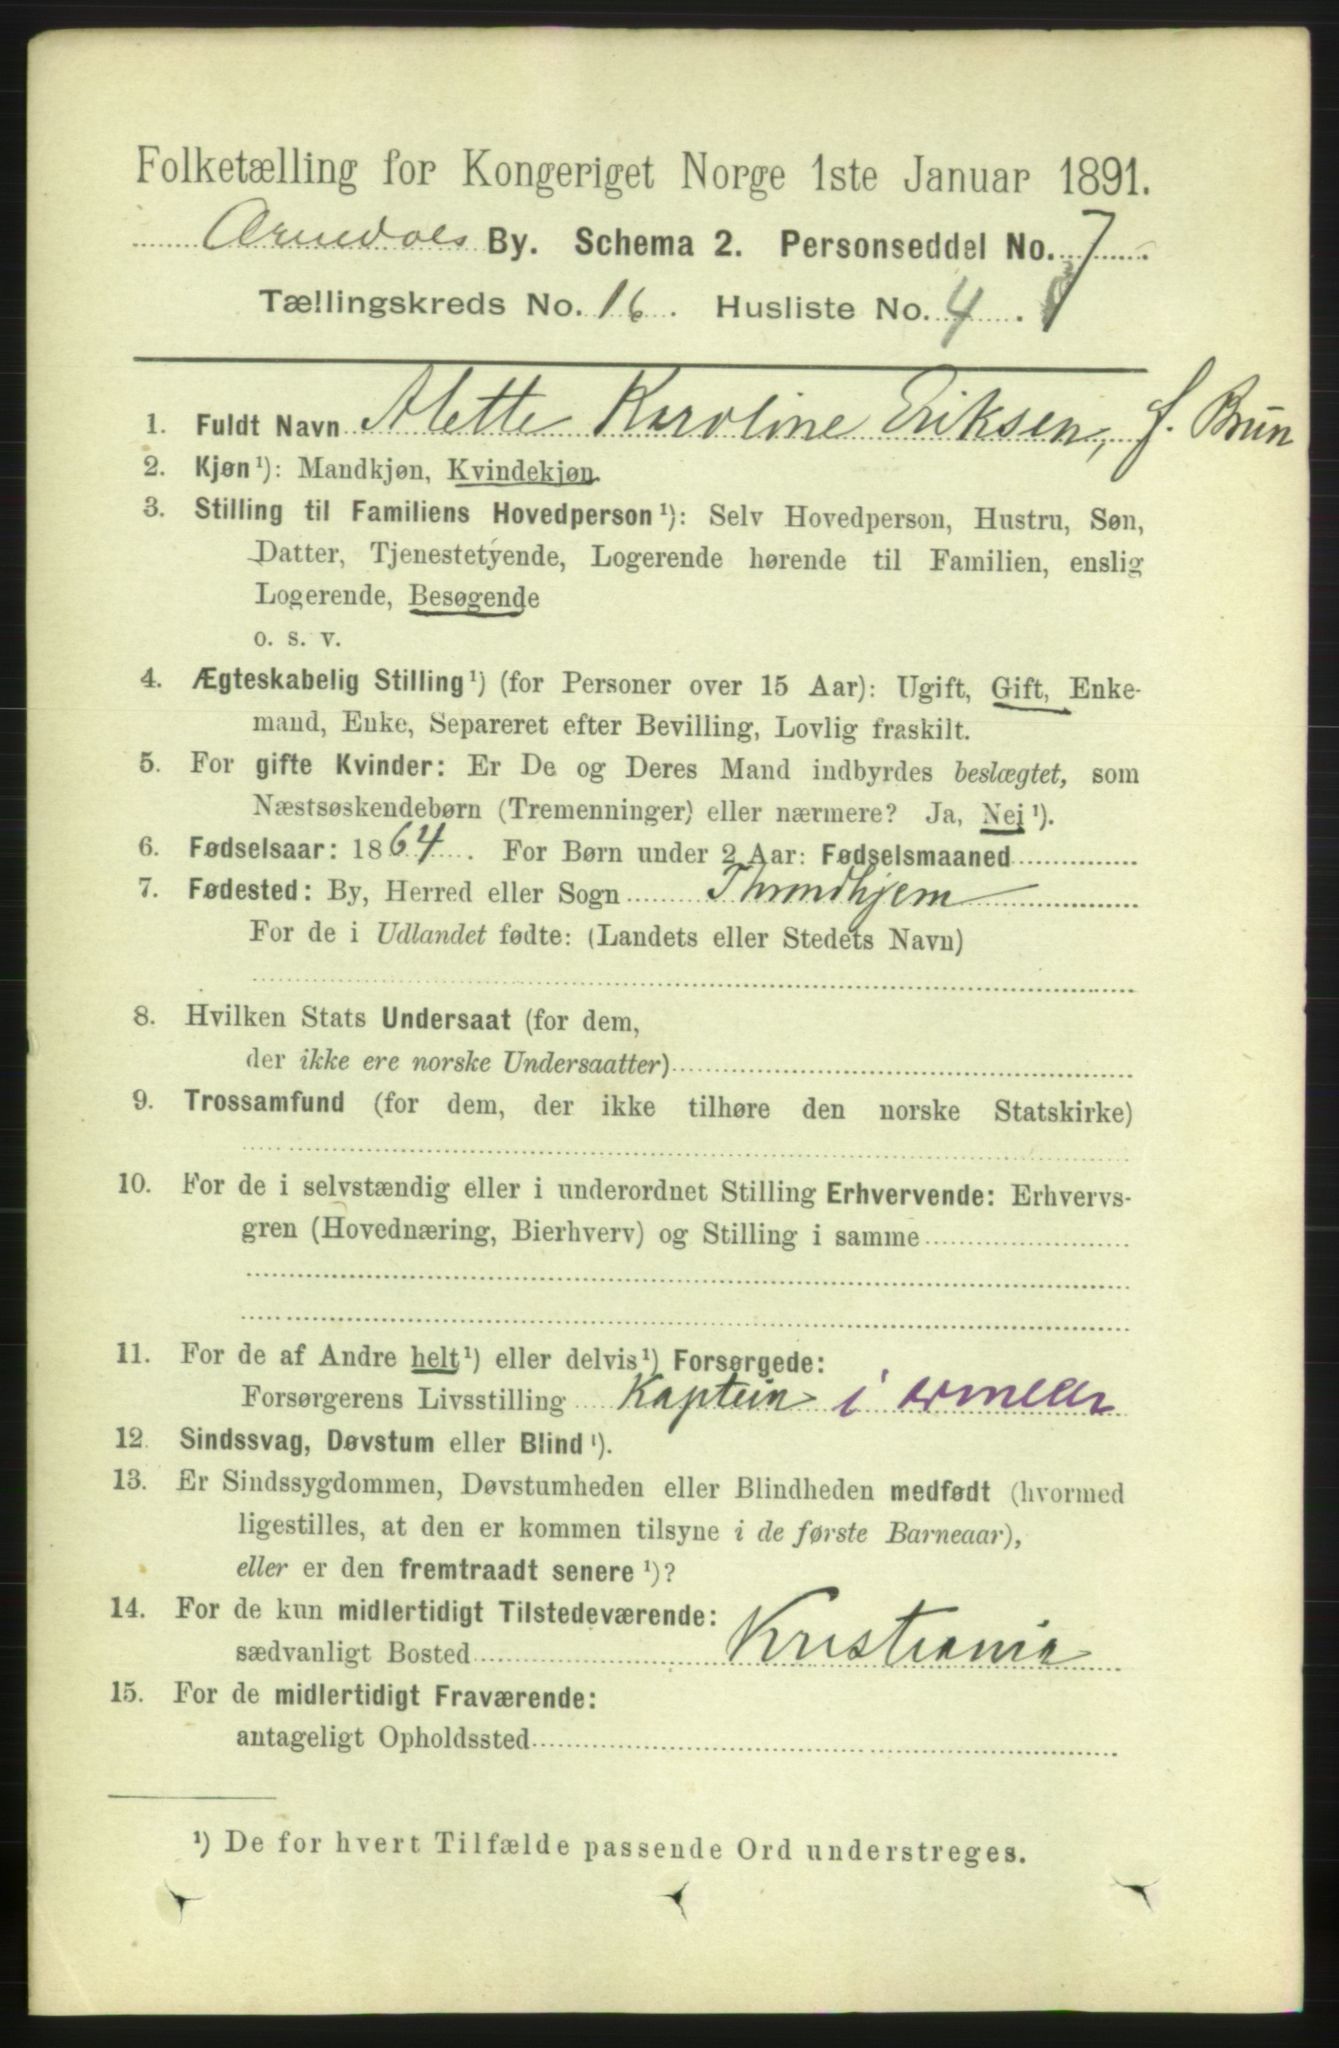 Folketælling for Kongeriget Norge 1ste Januar 1891.
Arendals By. Schema 2. Personseddel No. 7
Tællingskreds No. 16. Husliste No. 4.
1. Fuldt Navn Alette Karoline Eriksen, f. Brun
2. Kjøn ¹): Mandkjøn, Kvindekjøn
3. Stilling til Familiens Hovedperson ¹): Selv Hovedperson, Hustru, Søn,
Datter, Tjenestetyende, Logerende hørende til Familien, enslig
Logerende, Besøgende
o. s. v.
4. Ægteskabelig Stilling ¹) (for Personer over 15 Aar): Ugift, Gift, Enke-
mand, Enke, Separeret efter Bevilling, Lovlig fraskilt.
5. For gifte Kvinder: Er De og Deres Mand indbyrdes beslægtet, som
Næstsøskendebørn (Tremenninger) eller nærmere? Ja, Nej ¹).
6. Fødselsaar: 1864. For Børn under 2 Aar: Fødselsmaaned
7. Fødested: By, Herred eller Sogn Throndhjem
For de i Udlandet fødte: (Landets eller Stedets Navn)
8. Hvilken Stats Undersaat (for dem,
der ikke ere norske Undersaatter)
9. Trossamfund (for dem, der ikke tilhøre den norske Statskirke)
10. For de i selvstændig eller i underordnet Stilling Erhvervende: Erhvervs-
gren (Hovednæring, Bierhverv) og Stilling i samme
11. For de af Andre helt ¹) eller delvis ¹) Forsørgede:
Forsørgerens Livsstilling Kaptein i armeen
12. Sindssvag, Døvstum eller Blind ¹).
13. Er Sindssygdommen, Døvstumheden eller Blindheden medfødt (hvormed
ligestilles, at den er kommen tilsyne i de første Barneaar),
eller er den fremtraadt senere ¹)?
14. For de kun midlertidigt Tilstedeværende:
sædvanligt Bosted Kristiania
15. For de midlertidigt Fraværende:
antageligt Opholdssted
¹) De for hvert Tilfælde passende Ord understreges.